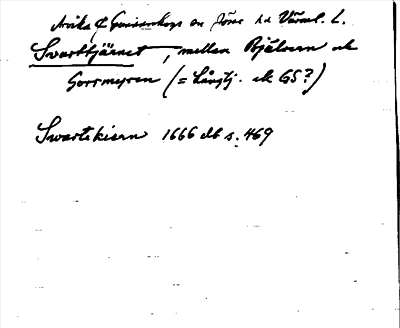 Arvika & Gunnarskogs  Jösse hd Värml. L.
Svarttjärnet, mellan Bjälvern ok
Gorrmyren (= Långtj. ek GS?)
Svartekiern 1666 db s. 469